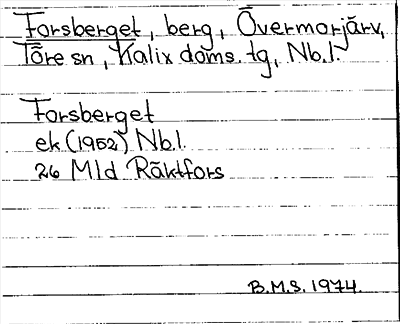 Forsberget, berg, Övermorjärv,
Töre sn, Kalix doms. tg, Nb.l.
Forsberget
ek (1952) Nb.l.
26 Mld Räktfors
B.M.S. 1974.